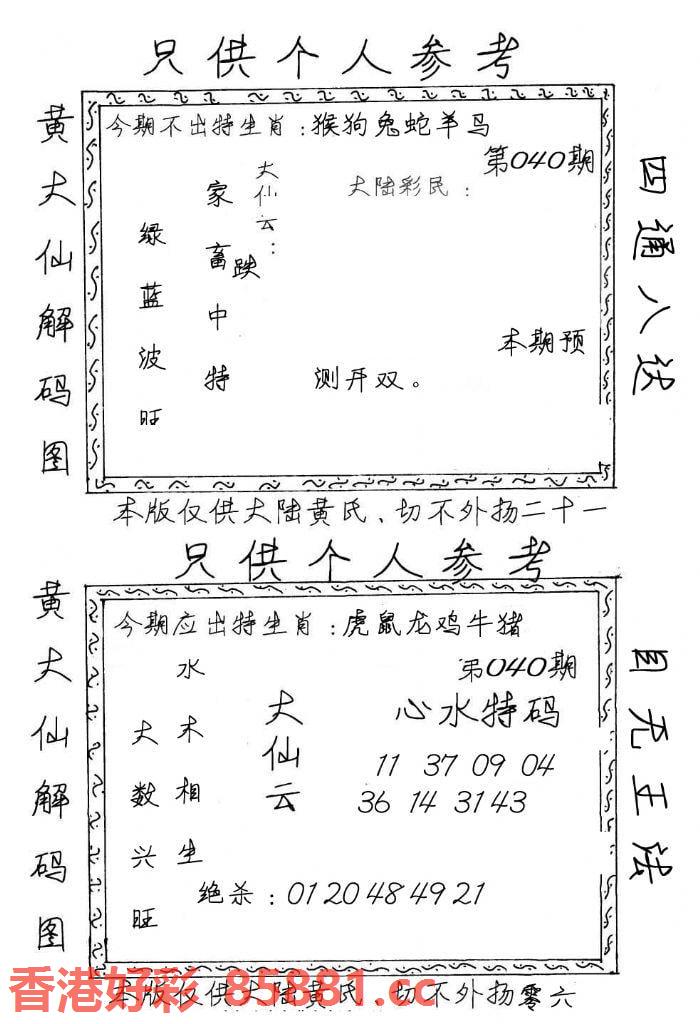 只供个人参考
黄大仙解码图
今期不出特生肖：猴狗兔蛇羊马
第040期
大仙云：
大陆彩民：
家畜中特
跌
绿蓝波旺
本期预
测开双。
四通八达
本版仅供大陆黄氏、切不外扬二十一
只供个人参考
黄大仙解码图
今期应出特生肖：虎鼠龙鸡牛猪
第040期
水木相生
大数兴旺
大仙云
心水特码
11 37 09 04
36 14 31 43
绝杀：01 20 48 49 21
目无王法
本版仅供大陆黄氏、切不外扬零六
香港好彩 85881.cc